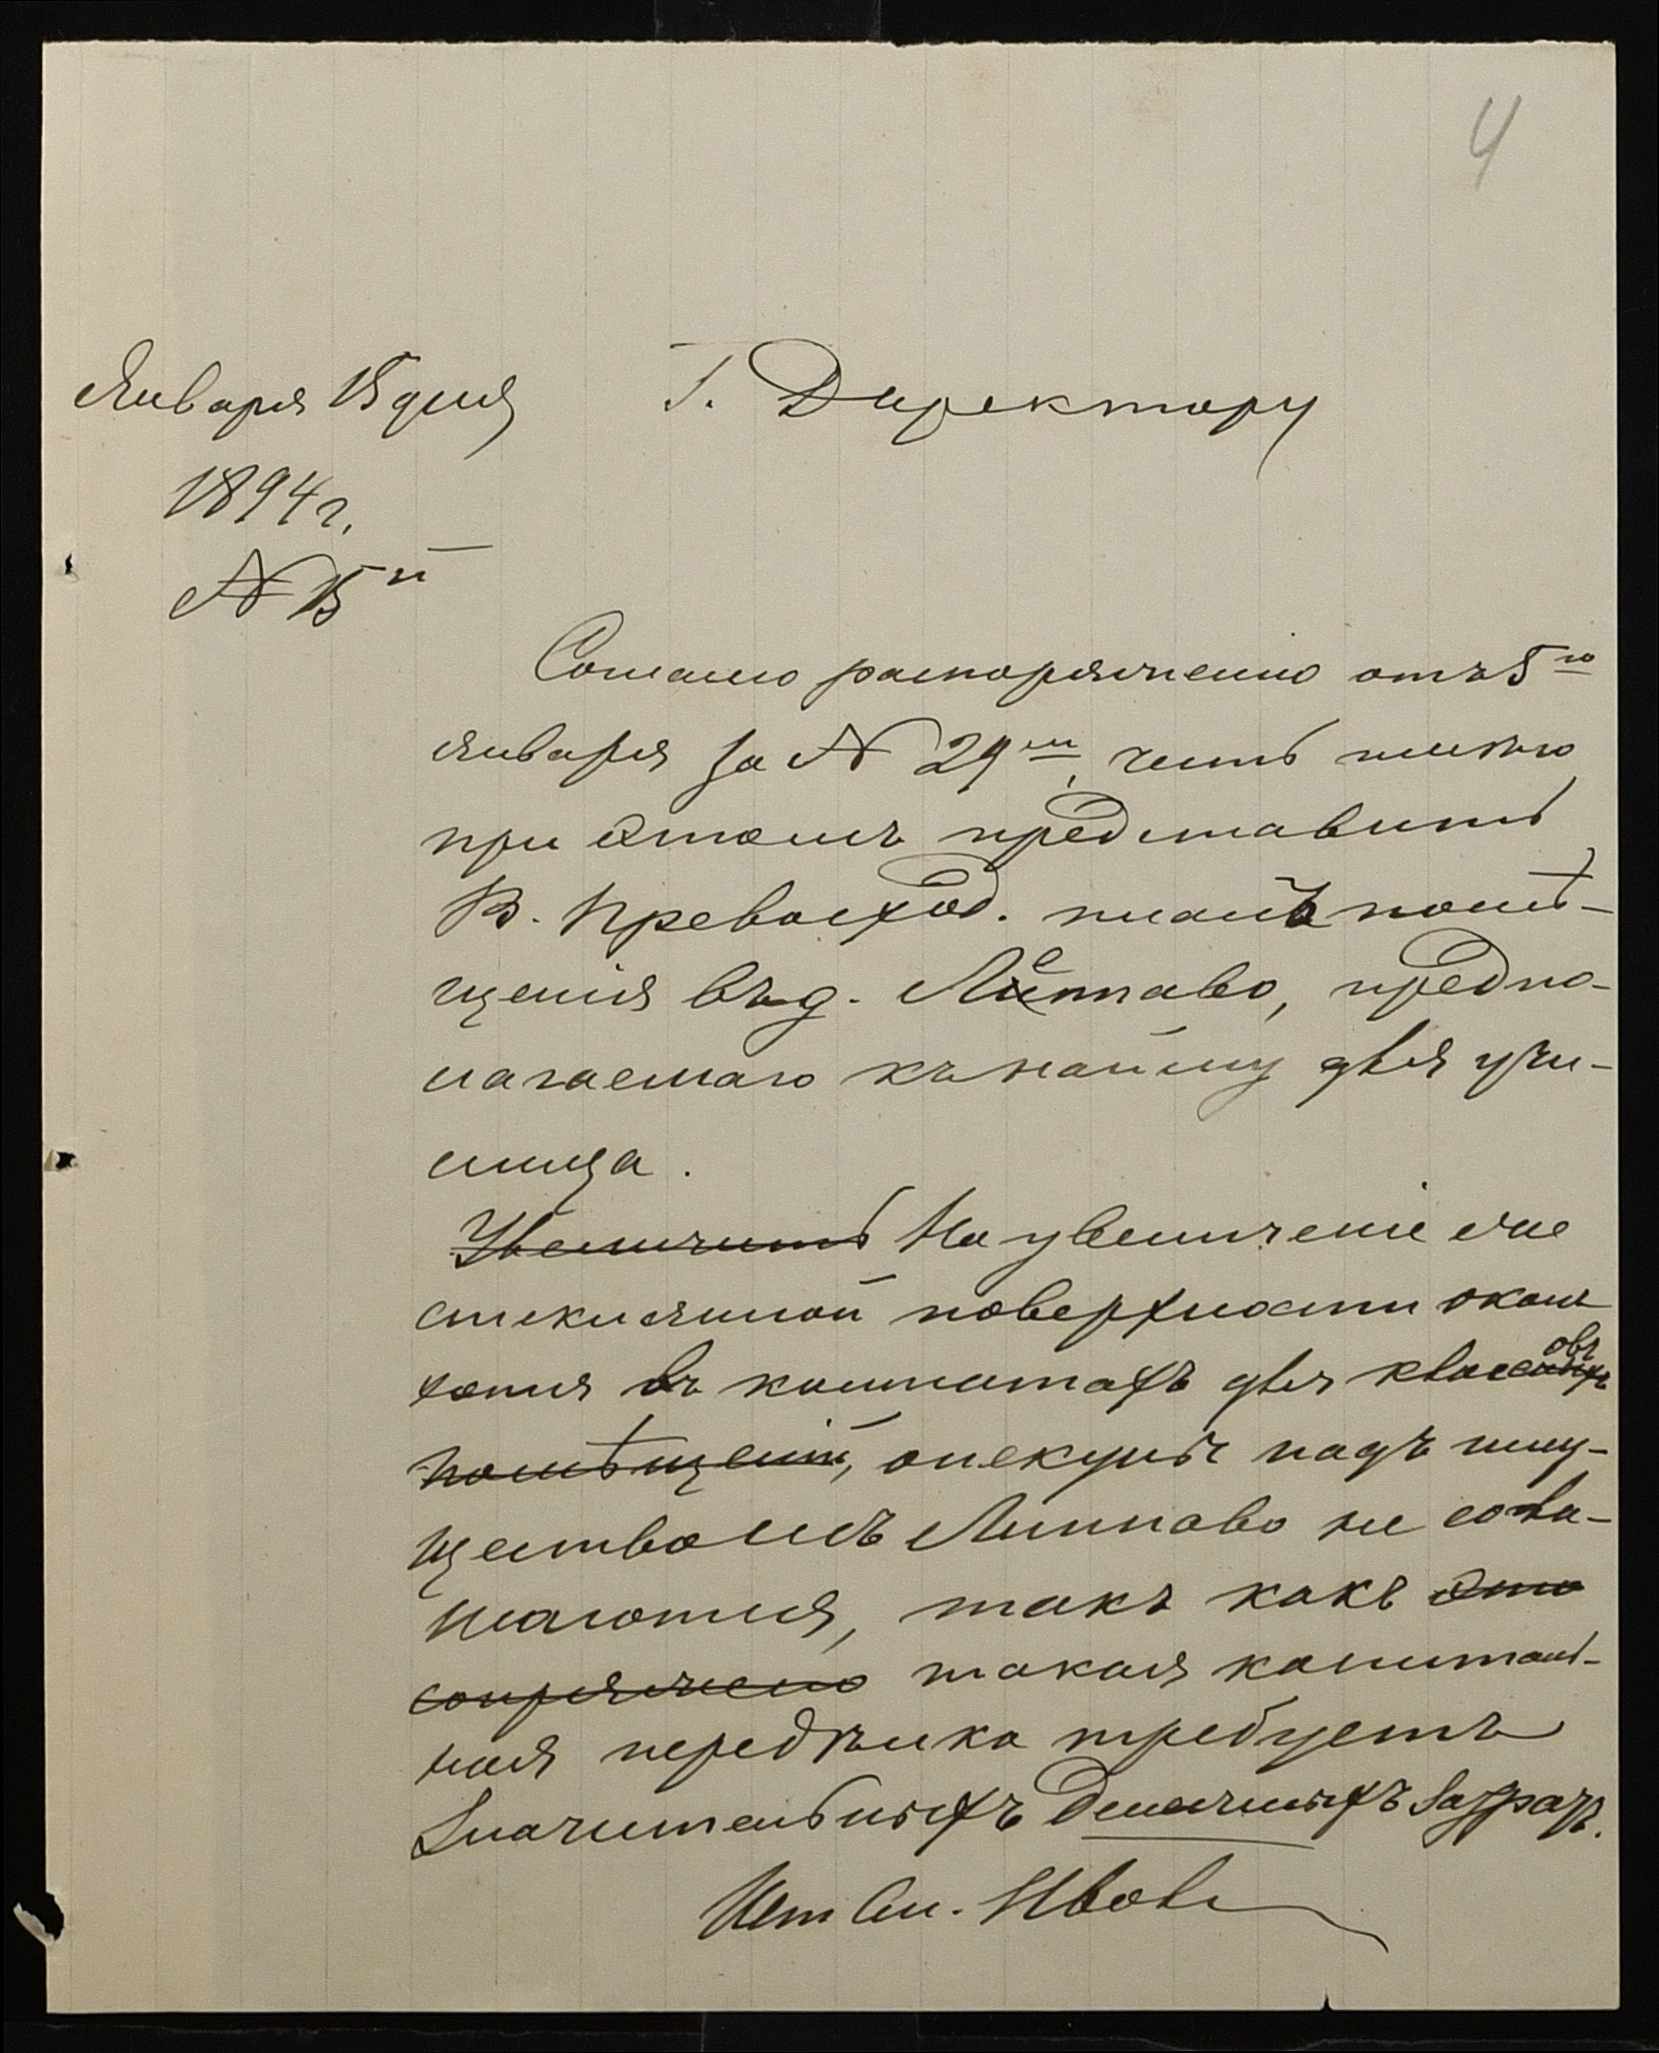 4
Января 15 дня Г. Директору
1894 г.
№ 15й
Согласно распоряженію отъ 5го
января за № 29м, честь имѣю
при этомъ представить
В. Превосход. планъ помѣ-
щенія въ д. Леппаво, предпо-
лагаемаго къ найму для учи-
лища.
Увеличить На увеличеніе же
стеклянной поверхности окон
хотя въ комнатахъ для классовъ
помѣщеній, опекуны надъ иму-
ществомъ Липпаво не согла-
шаются, такъ какъ это
сопряжено такая капиталь-
ная передѣлка требуетъ
значительныхъ денежныхъ затратъ.